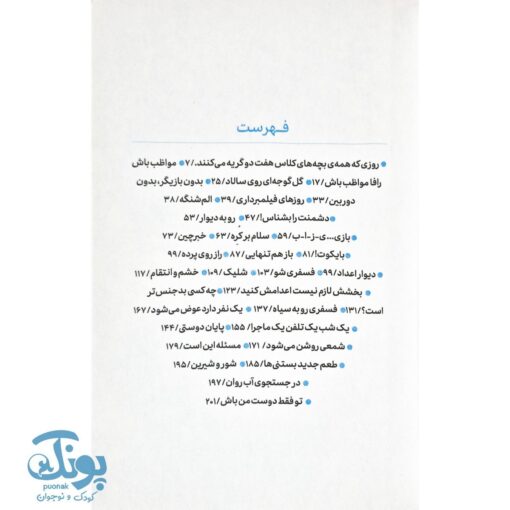 فهرست
● روزی که همه‌ی بچه‌های کلاس هفت دو گریه می‌کنند./۷ ● مواظب باش
رافا مواظب باش/۱۷ ● گل گوجه‌ای روی سالاد/۲۵ ● بدون بازیگر، بدون
دوربین/۳۳ ● روزهای فیلمبرداری/۳۹ ● الم‌شنگه/۳۸
● دشمنت را بشناس!/۴۷ ● رو به دیوار/۵۳
● بازی...ی-ز-ا-ب/۵۹ ● سلام بر کره/۶۳ ● خبرچین/۷۳
● بایکوت!/۸۱ ● باز هم تنهایی/۸۷ ● راز روی پرده/۹۹
● دیوار اعداد/۹۹ ● فسفری شو/۱۰۳ ● شلیک/۱۰۹ ● خشم و انتقام/۱۱۷
● بخشش لازم نیست اعدامش کنید/۱۲۳ ● چه کسی بدجنس‌تر
است؟/۱۳۱ ● فسفری رو به سیاه/۱۳۷ ● یک نفر دارد عوض می‌شود/۱۶۷
● یک شب یک تلفن یک ماجرا/۱۵۵ ● پایان دوستی/۱۴۴
● شمعی روشن می‌شود/۱۷۱ ● مسئله این است/۱۷۹
● طعم جدید بستنی‌ها/۱۸۵ ● شور و شیرین/۱۹۵
● در جستجوی آب روان/۱۹۷
● تو فقط دوست من باش/۲۰۱
پونک
puonak
کودک و نوجوان